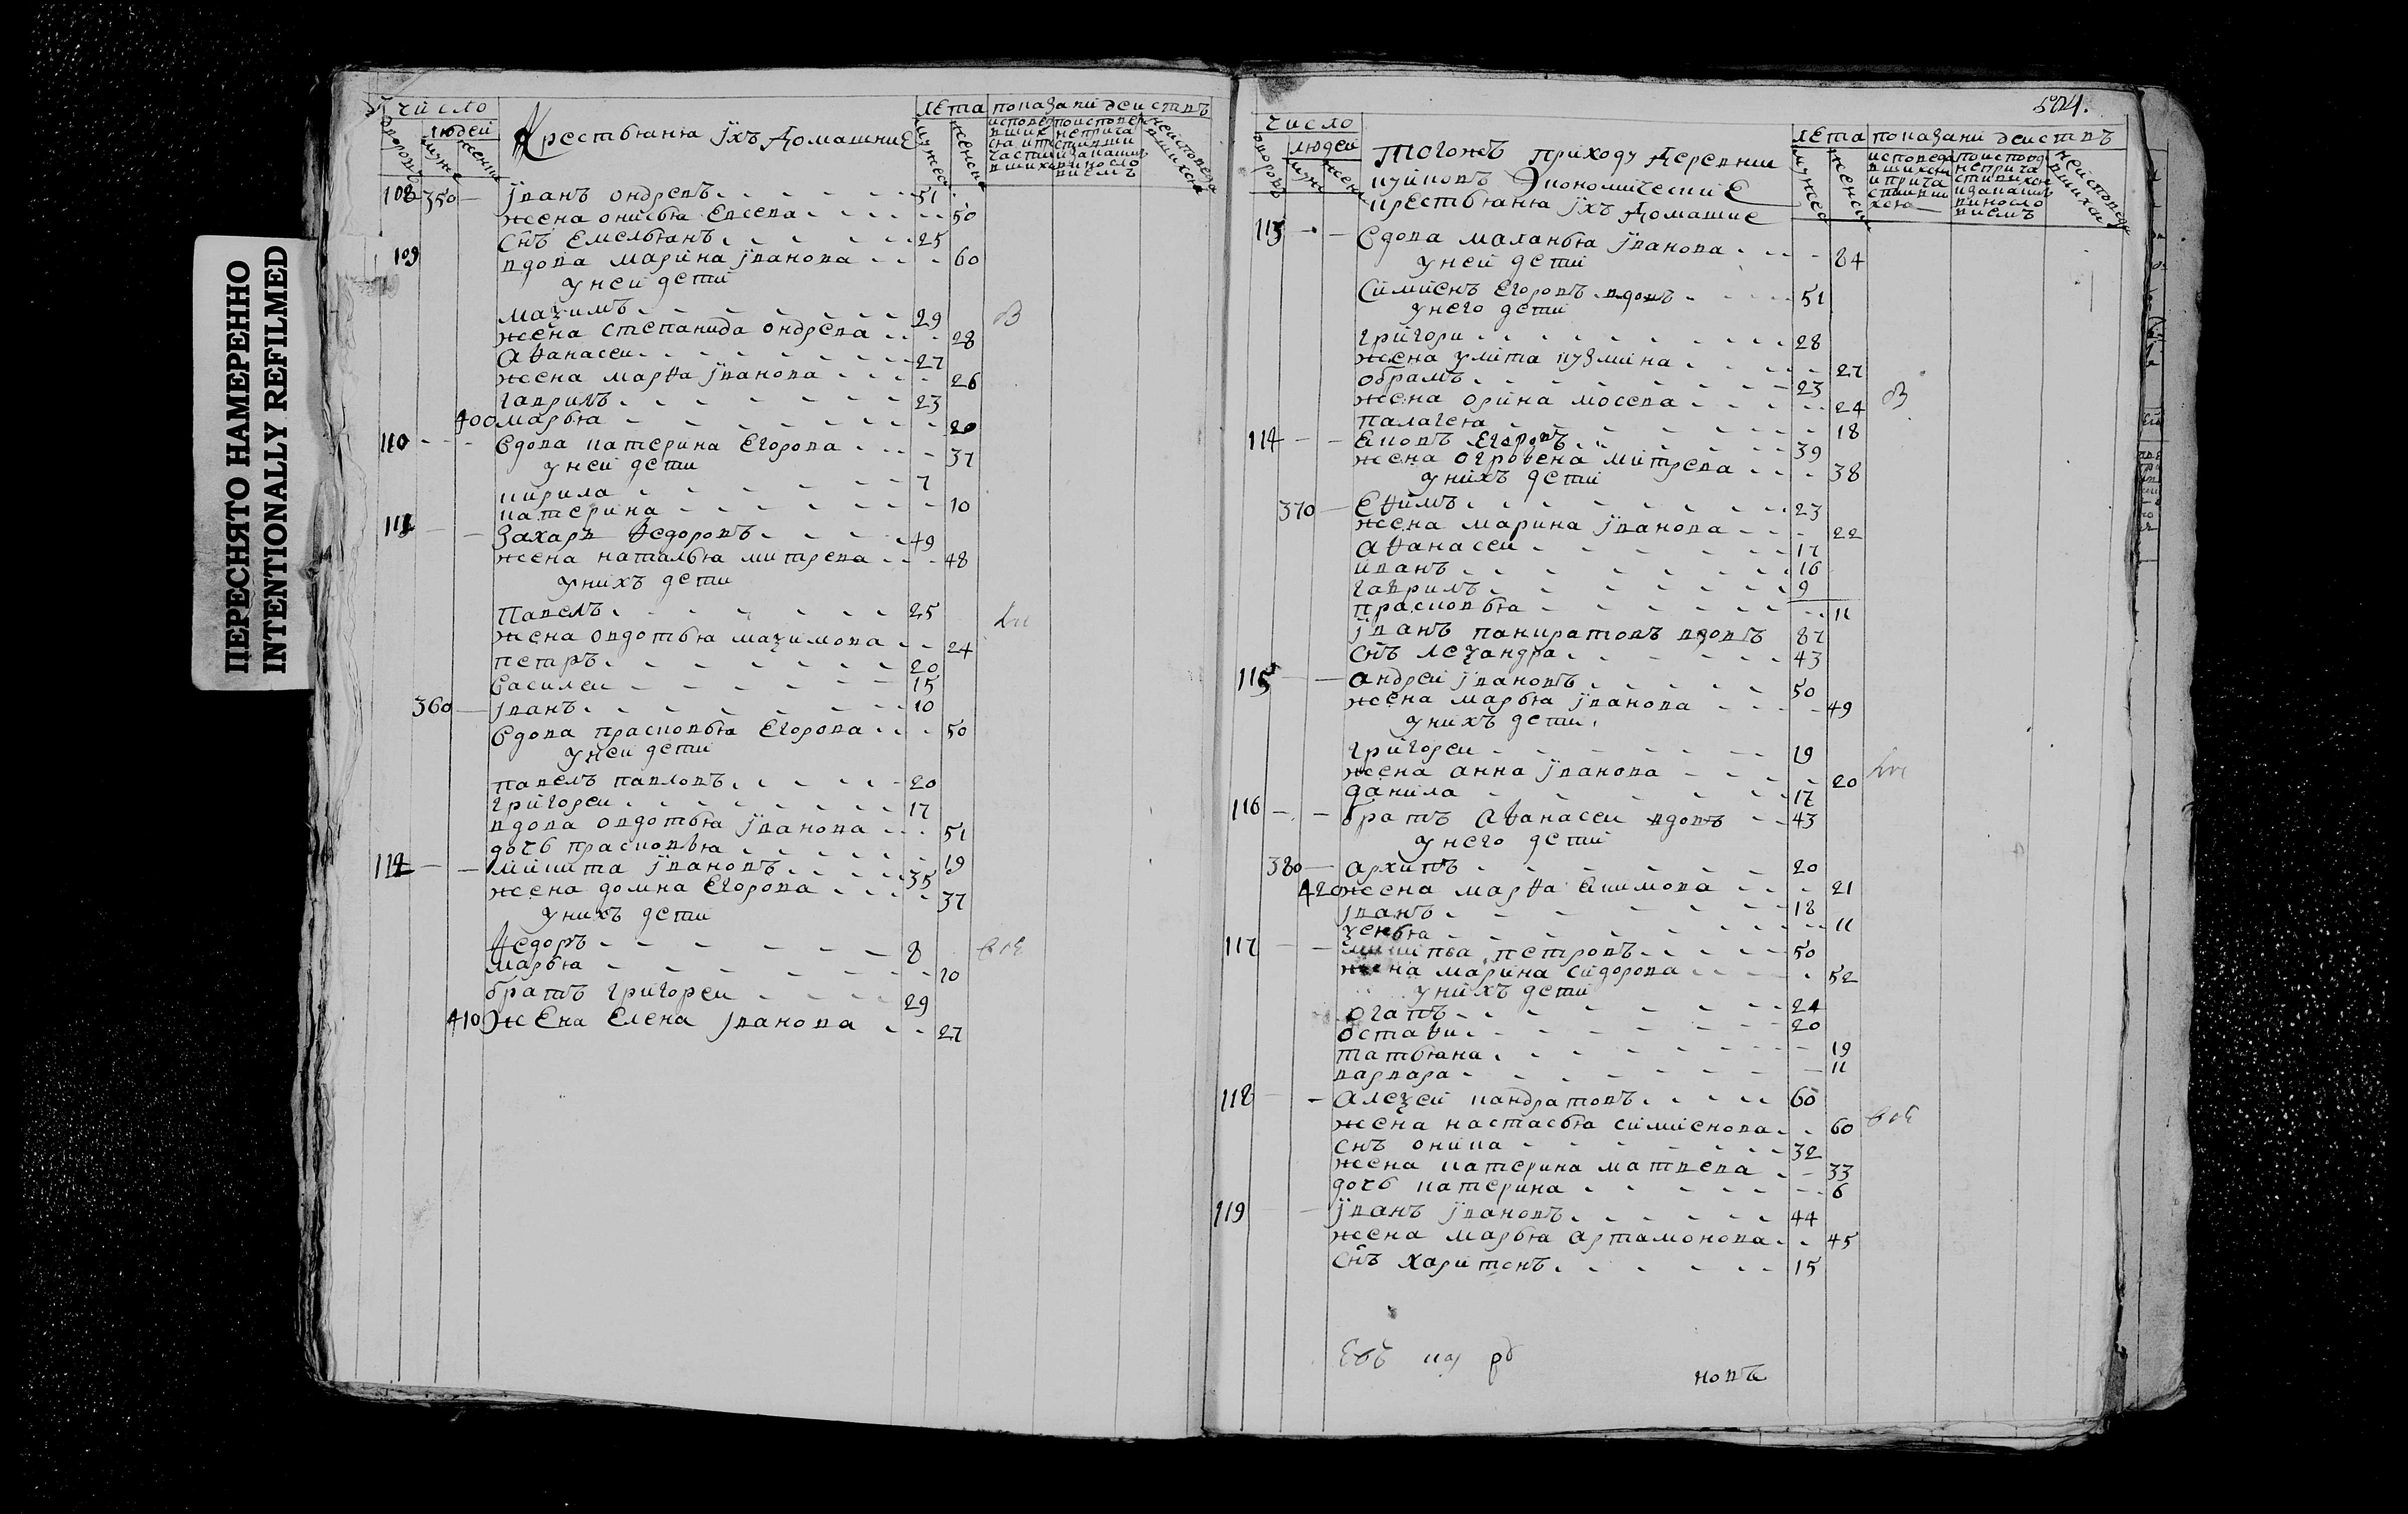 ПЕРЕСНЯТО НАМЕРЕННО
INTENTIONALLY REFILMED
число
людей
Крестьяня їхъ домашние
лета показани действъ
108 350 їванъ ондревъ 51
жена онисья Евсева 50
снъ Емельянъ 25
109 вдова марина їванова 60
у ней дети
мазимъ 29
жена степанида ондрева 28
аѳанасеи 27
жена марѳа їванова 26
гаврилъ 23
400 марья 20
110 вдова катерина Егорова 37
у ней дети
кирила 7
катерина 10
111 Захаръ ѳедоровъ 49
жена наталья митрева 48
у нихъ дети
Павелъ 25
жена овдотья мазимова 24
петръ 20
василеи 15
360 їванъ 10
вдова прасковья Егорова 50
у ней дети
павелъ павловъ 20
григореи 17
вдова овдотья їванова 51
дочь прасковья 19
112 микита ївановъ 35
жена домна Егорова 37
у нихъ дети
ѳедоръ 8
марья 10
братъ григореи 29
410 жена Елена їванова 27
504.
число
людей
лета показани деиствъ
Тогожъ приходу деревни
куйковъ Экономическиѣ
крестьяня їхъ домашние
113 вдова маланья їванова 84
у ней дети
симиенъ Егоровъ вдовъ 51
у него дети
григори 28
жена улита кузмина 27
обрамъ 23
жена орина мосева 24
палагея 18
114 Егоровъ 39
жена огроѳена митрева 38
у нихъ дети
370 Еѳимъ 23
жена марина їванова 22
аѳанасеи 17
иванъ 16
гаврилъ 9
прасковья 11
їванъ панкратовъ вдовъ 87
снъ лезандра 43
115 андреи ївановъ 50
жена марья їванова 49
у нихъ дети
григореи 19
жена анна їванова 20
данила 17
116 братъ аѳанасеи вдовъ 43
у него дети
380 архипъ 20
420 жена марѳа екимова 21
їванъ 18
11
117 петровъ 50
жена марина сидорова 52
у нихъ дети
огапъ 24
остаѳи 20
татьяна 19
варвара 11
118 алезей кандратовъ 60
жена настасья симиенова 60
снъ оника 32
жена катерина матвева 33
дочь катерина 6
119 їванъ ївановъ 44
жена марья артамонова 45
снъ харитонъ 15
новъ